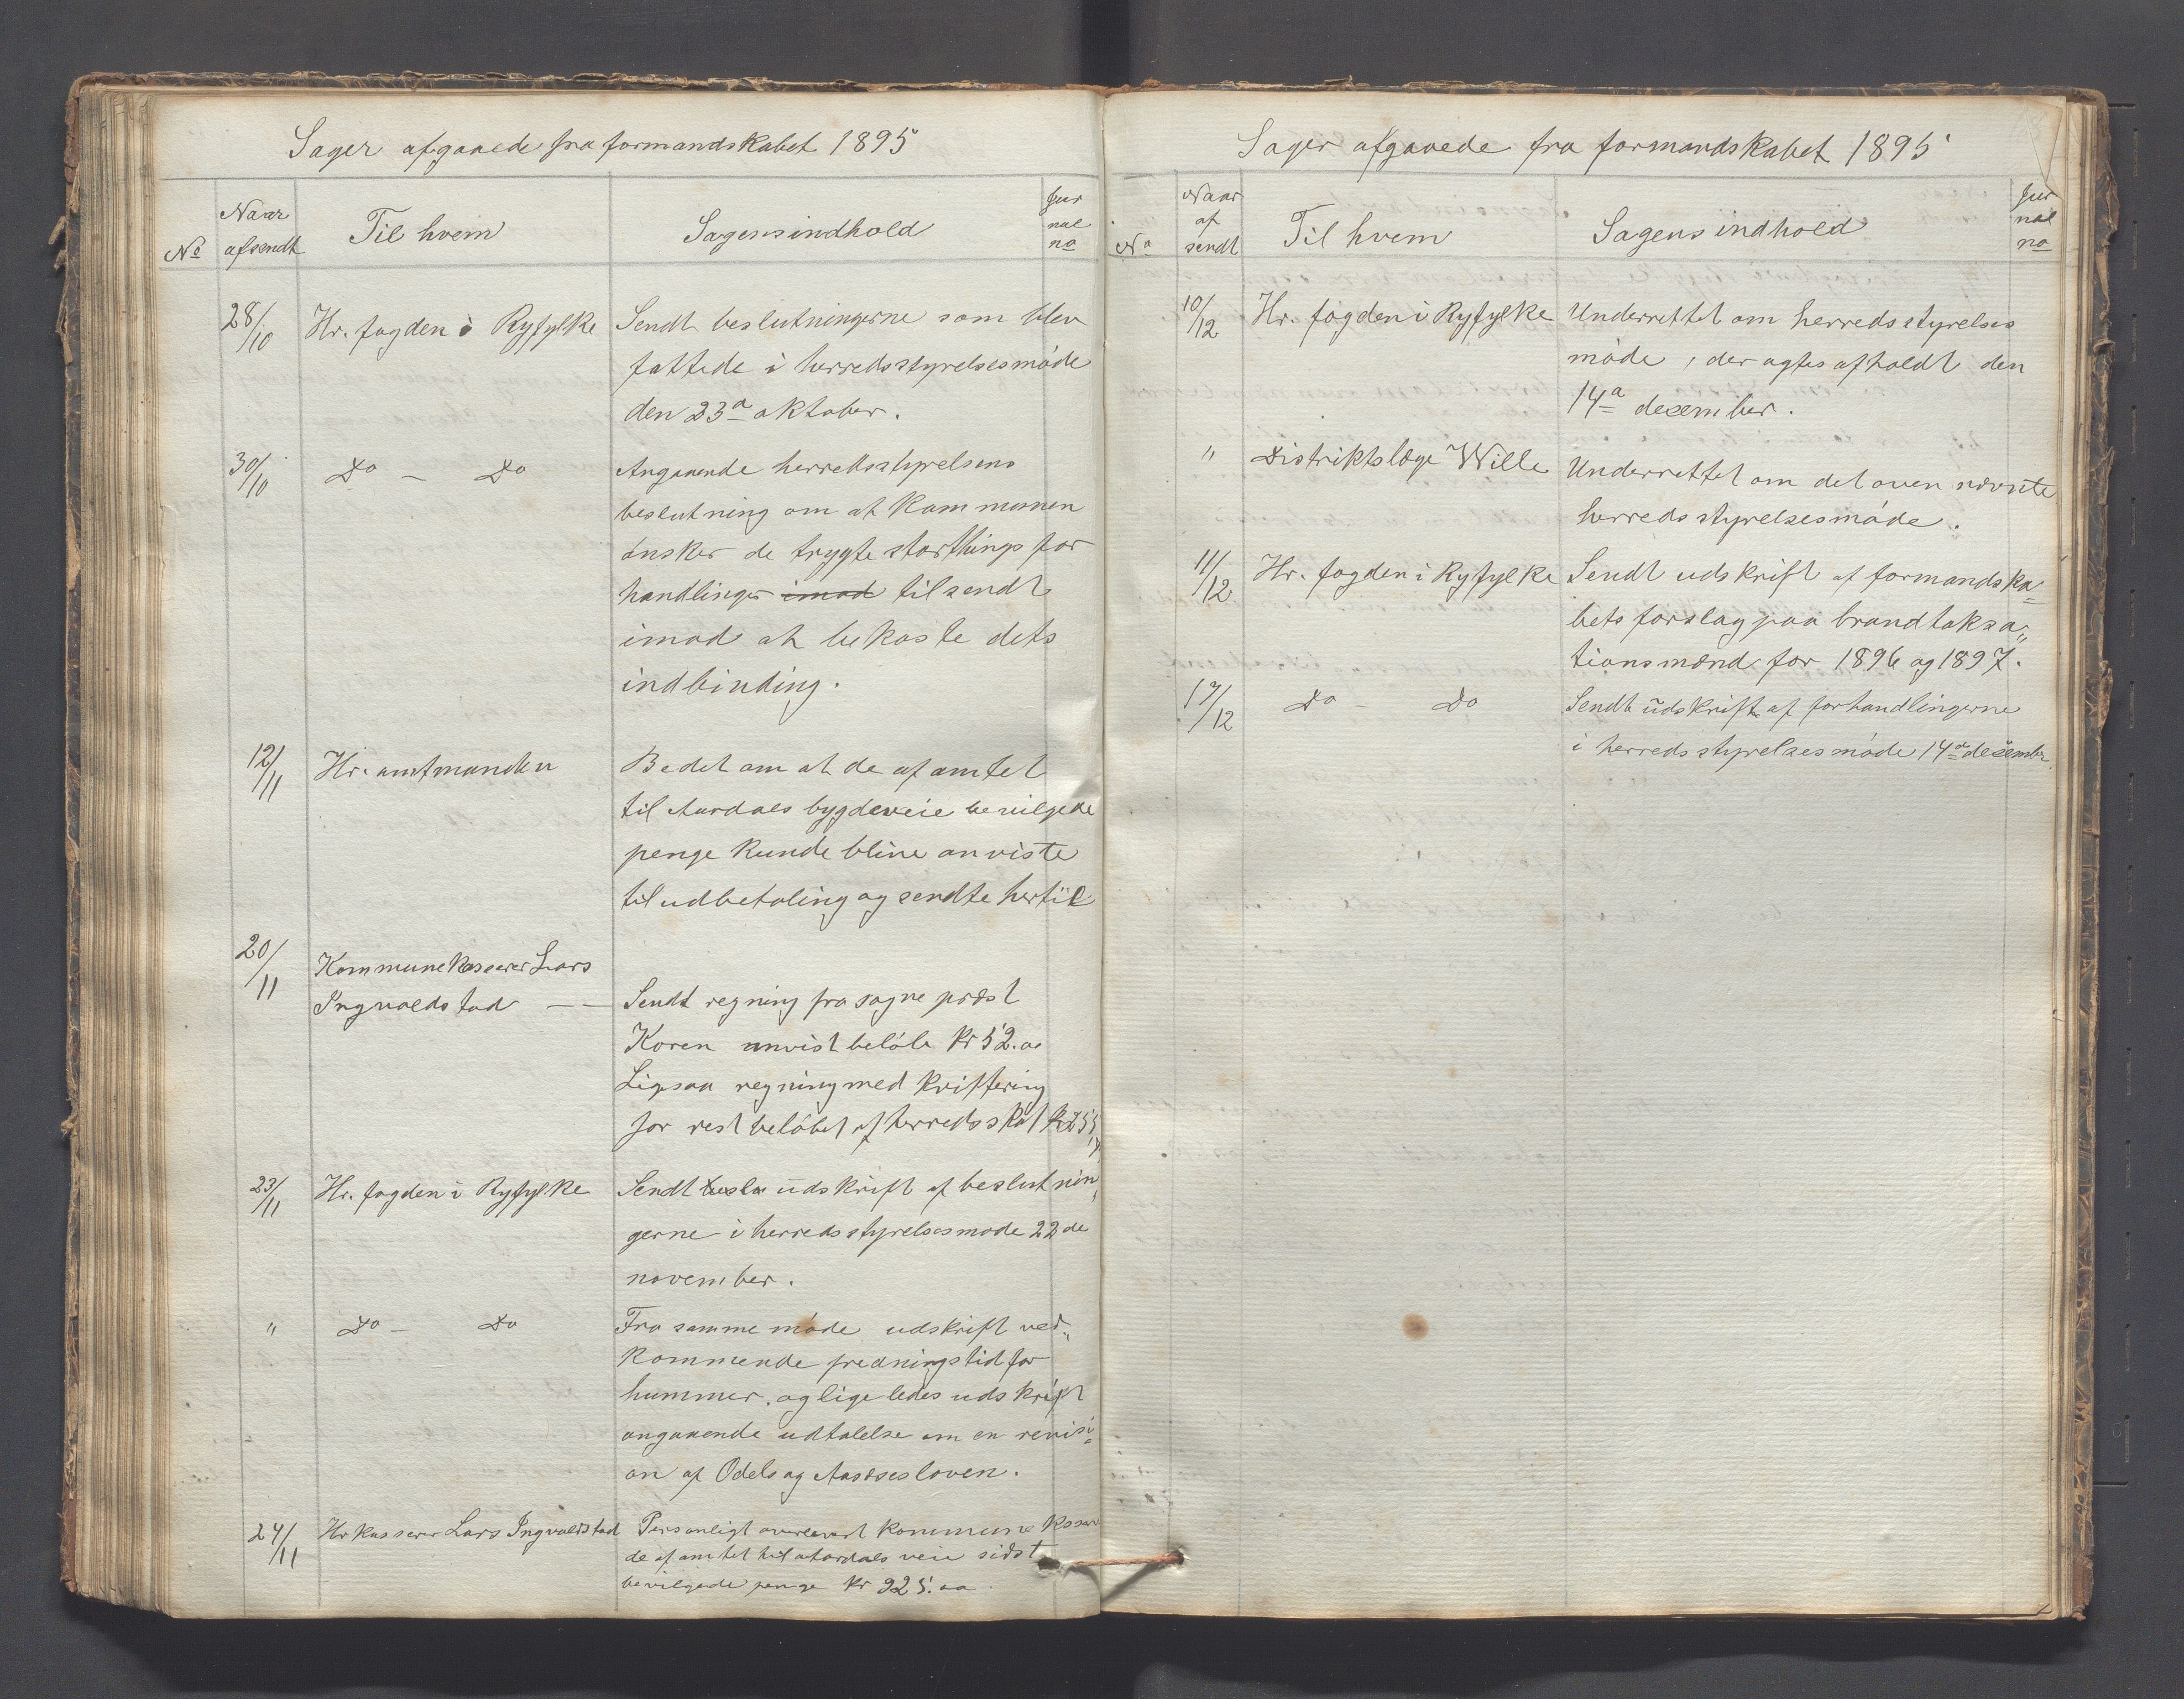 Sager afgaaede fra formandskabet 1895
No
Naar afsendt
Til hvem
Sagens indhold
Jur nal no
28/10 Hr. fogden i Ryfylke Sendt beslutningerne som blev
fattede i herredsstyrelsesmøde
den 23de oktober.
30/10 Do — Do Angaaende herredsstyrelsens
beslutning om at Kommunen
ønsker de trygte storthings for
handlinger imod tilsendt
imod at bekoste dets
indbinding.
12/11 Hr. amtmanden Bedet om at de af amtet
til Aardals bygdeveie bevilgede
penge kunde blive anviste
til udbetaling og sendte hertil
20/11 Kommunekasserer Lars
Ingvaldstad — — Sendt regning fra sogneprest
Koren anvist beløb Kr 52.00
Ligesaa regning med kvittering
for restbeløbet af herredsskat
23/11 Hr. fogden i Ryfylke Sendt udskrift af beslutnin„
gerne i herredsstyrelsesmøde 22de
november.
" Do — Do Fra samme møde udskrift ved„
kommende fredningstid for
hummer, og ligeledes udskrift
angaaende udtalelse om en revisi=
on af Odels og Aasædesloven.
24/11 Hr kasserer Lars Ingvaldstad Personligt overlevert Kommune
de af amtet til Aardals veie sidst
bevilgede penge kr 925.00
Sager afgaaede fra formandskabet 1895
No
Naar af sendt
Til hvem
Sagens indhold
Jur nal no
10/12 Hr. fogden i Ryfylke Underrettet om herredsstyrelses
møde, der agtes afholdt den
14de desember.
" Distriktslæge Wille Underrettet om det oven nævnte
herredsstyrelsesmøde.
11/12 Hr. fogden i Ryfylke Sendt udskrift af formandska=
bets forslag paa brandtaksa„
tionsmænd for 1896 og 1897.
17/12 Do — Do Sendt udskrift af forhandlingerne
i herredsstyrelsesmøde 14de desember